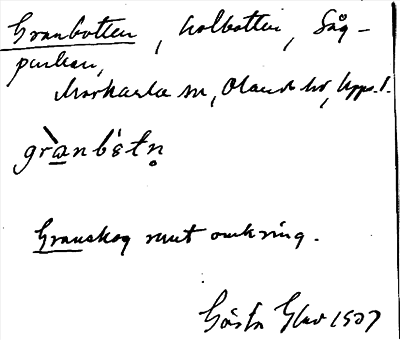 Granbotten, kolbotten, Såg-
punkan,
Markarla sn, Olands hd, Upps. l.
grànbɛ́tn̥
Granskog runt omkring.
Gösta Glav 1907